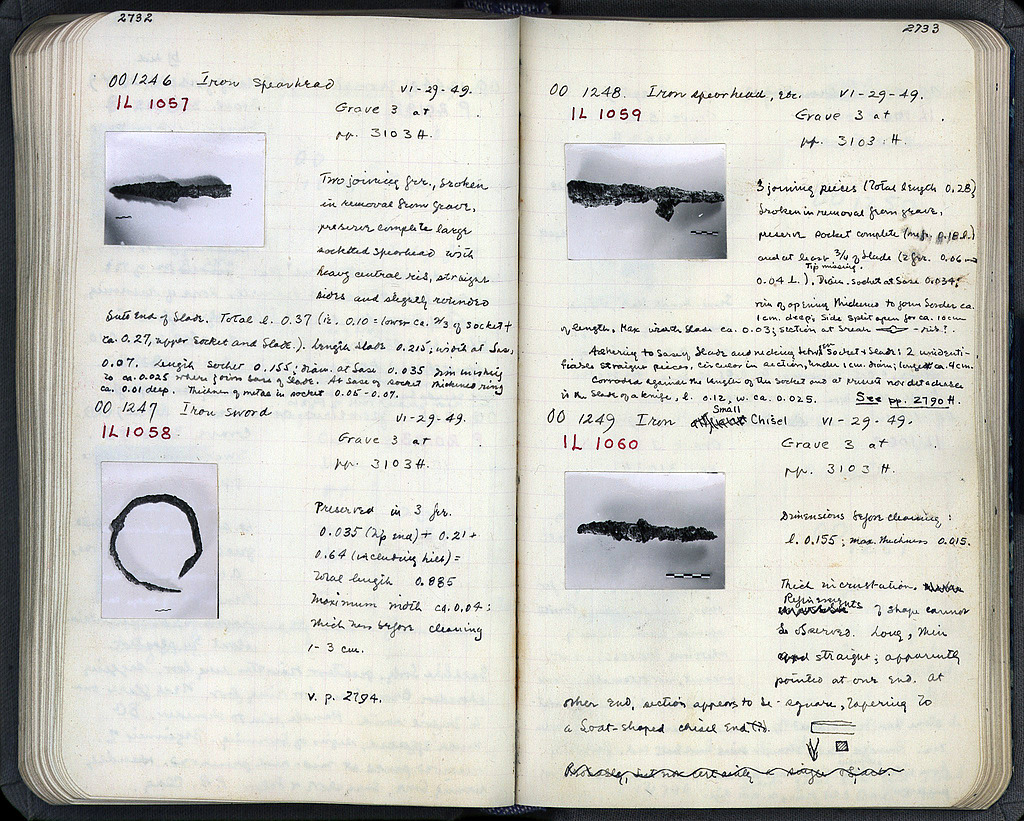 2732
OO 1246 Iron Spearhead VI-29-49.
IL 1057
Grave 3 at
pp. 3103 H.
Two joining fr., broken
in removal from grave,
preserve complete large
socketed spearhead with
heavy central rib, straight
sides and slightly rounded
base end of blade. Total l. 0.37 (i.e. 0.10 = lower ca. 2/3 of socket +
ca. 0.27, upper socket and blade.). Length blade 0.215; width at base,
0.07. Length socket 0.155; diam. at base 0.035 diminishing
to ca. 0.025 where joins base of blade. At base of socket thickened ring
ca. 0.01 deep. Thickness of metal in socket 0.05-0.07.
OO 1247 Iron sword VI-29-49.
IL 1058
Grave 3 at
pp. 3103 H.
Preserved in 3 fr.
0.035 (tip end) + 0.21 +
0.64 (including hilt) =
Total length 0.885
Maximum width ca. 0.04;
thickness before cleaning
1-3 cm.
v. p. 2794.
2733
OO 1248. Iron spearhead, etc. VI-29-49.
IL 1059
Grave 3 at
pp. 3103 H.
3 joining pieces (Total length 0.28)
broken in removal from grave,
preserve socket complete 0.18 l.)
and at least 3/4 of blade (2 fr. 0.06 —
Tip missing.
0.04 l.). Diam. socket at base 0.034;
rim of opening thickened to form border ca.
1 cm. deep; side split open for ca. 10 cm
of length. Max width blade ca. 0.03; section at break rib?
Adhering to base of blade and socket & blade: 2 unidenti-
fiable straight pieces, circular in section, under 1 cm. diam; longest ca. 4 cm.
Corroded against the length of the socket and at present not detachable
is the blade of a knife, l. 0.12, w. ca. 0.025. See pp. 2790 H.
OO 1249 Iron Small Chisel VI-29-49.
IL 1060
Grave 3 at
pp. 3103 H
Dimensions before cleaning:
l. 0.155; max. thickness 0.015.
Thick incrustation.
Refinements of shape cannot
be observed. Long, thin
and straight; apparently
pointed at one end. At
other end, section appears to be square, tapering to
a boat-shaped chisel end
Probably, but not certainly a single object.